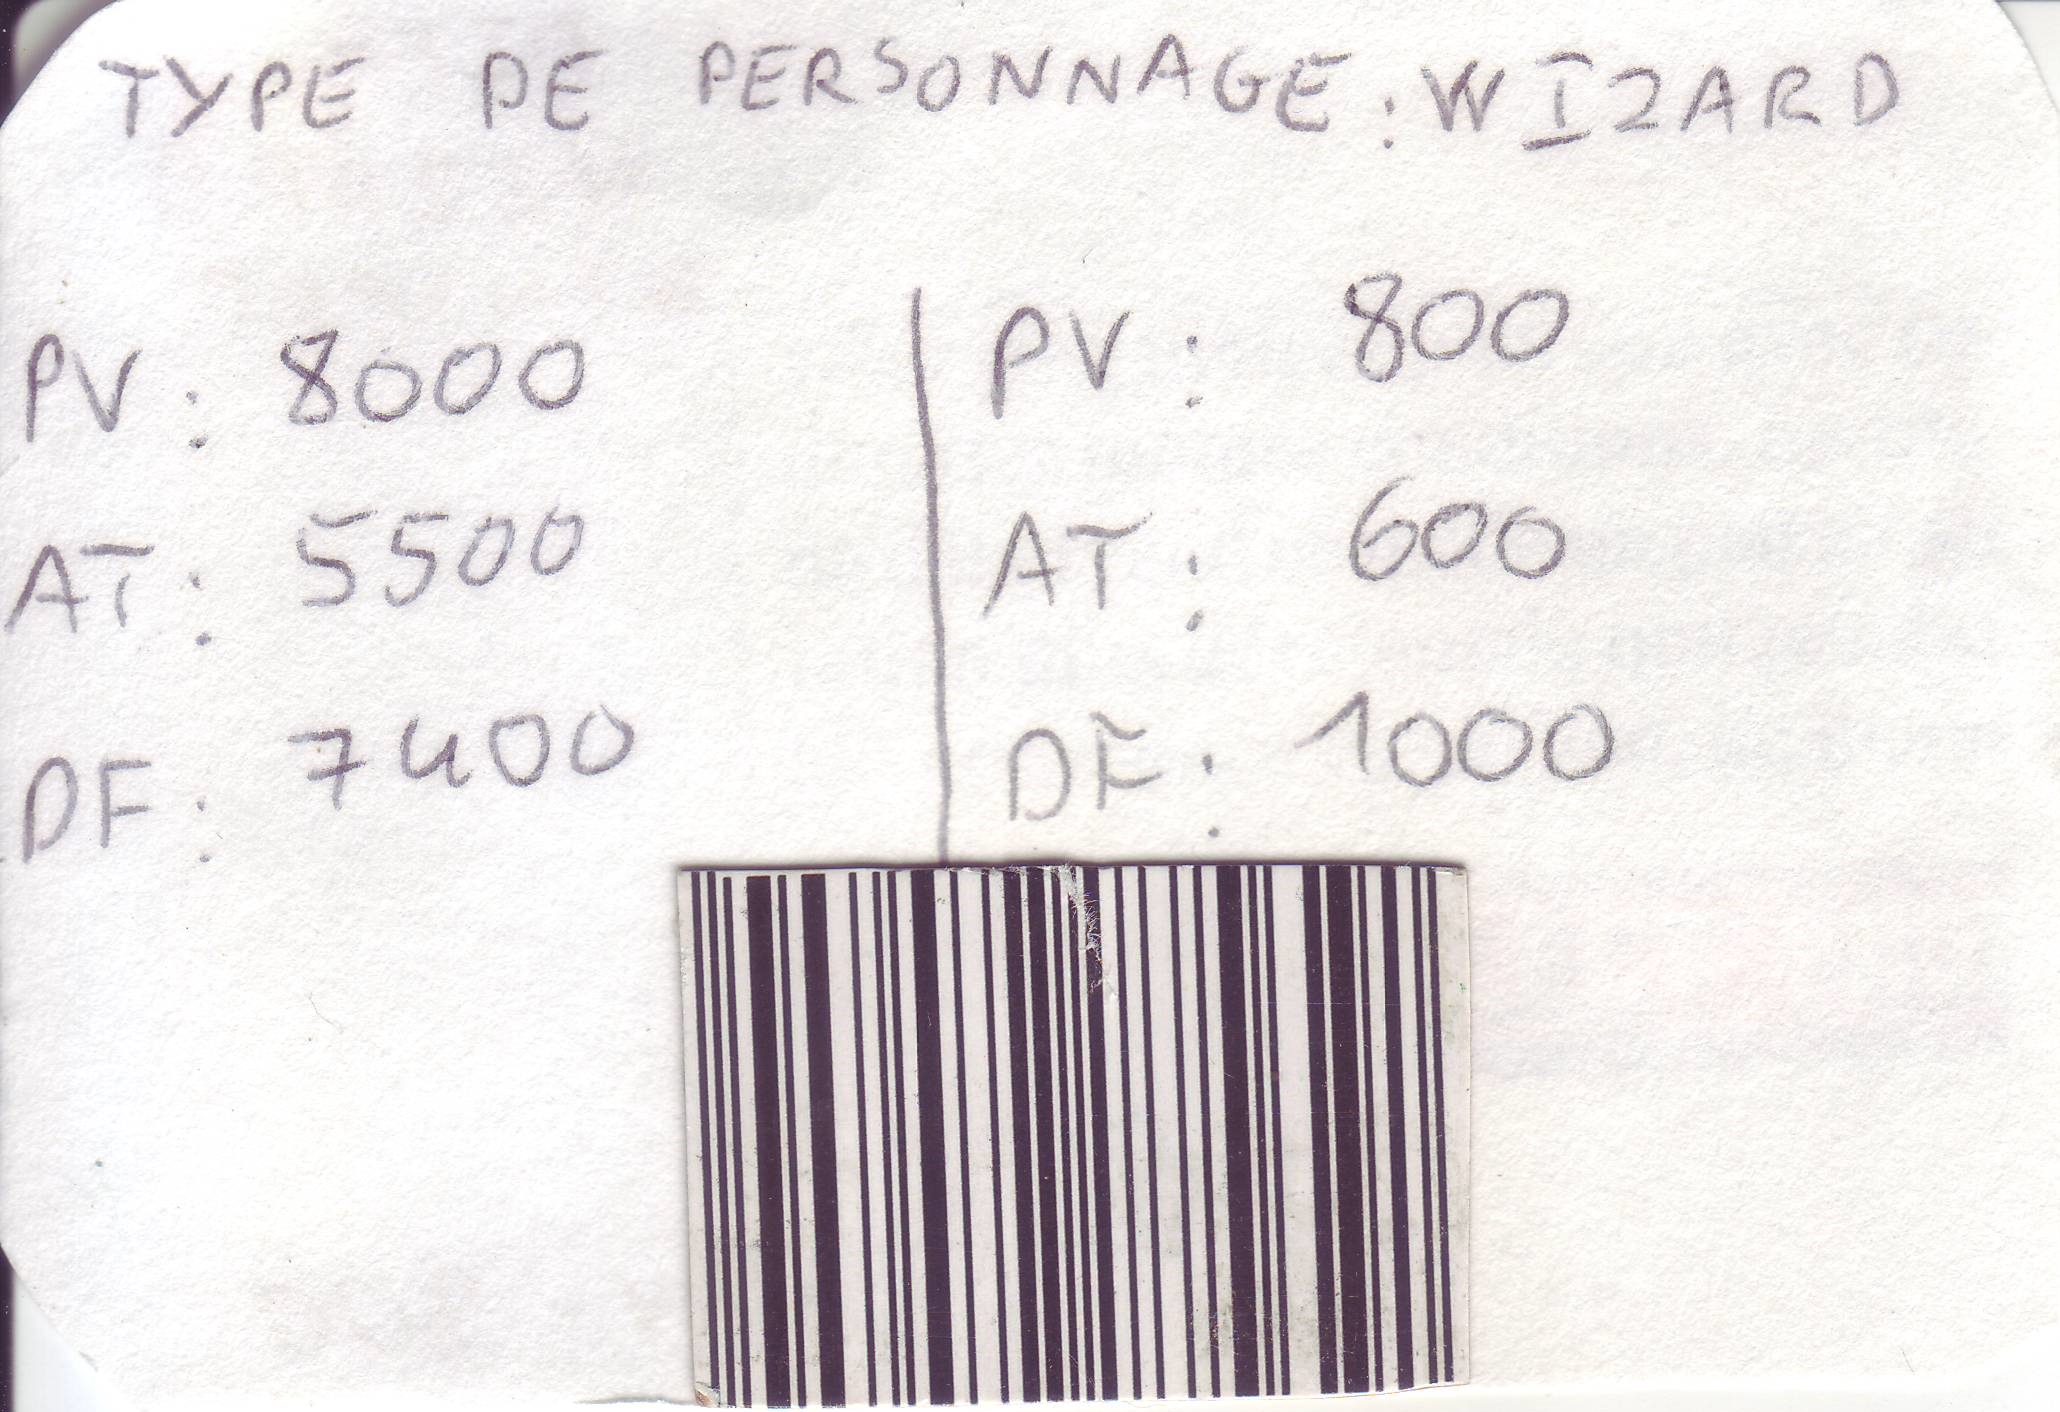 TYPE DE PERSONNAGE : WIZARD
PV : 8000
AT : 5500
DF : 7400
PV : 800
AT : 600
DF : 1000